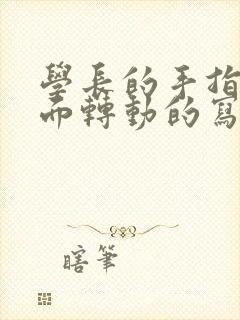 學長的手指
而轉動的寫
瞎筆